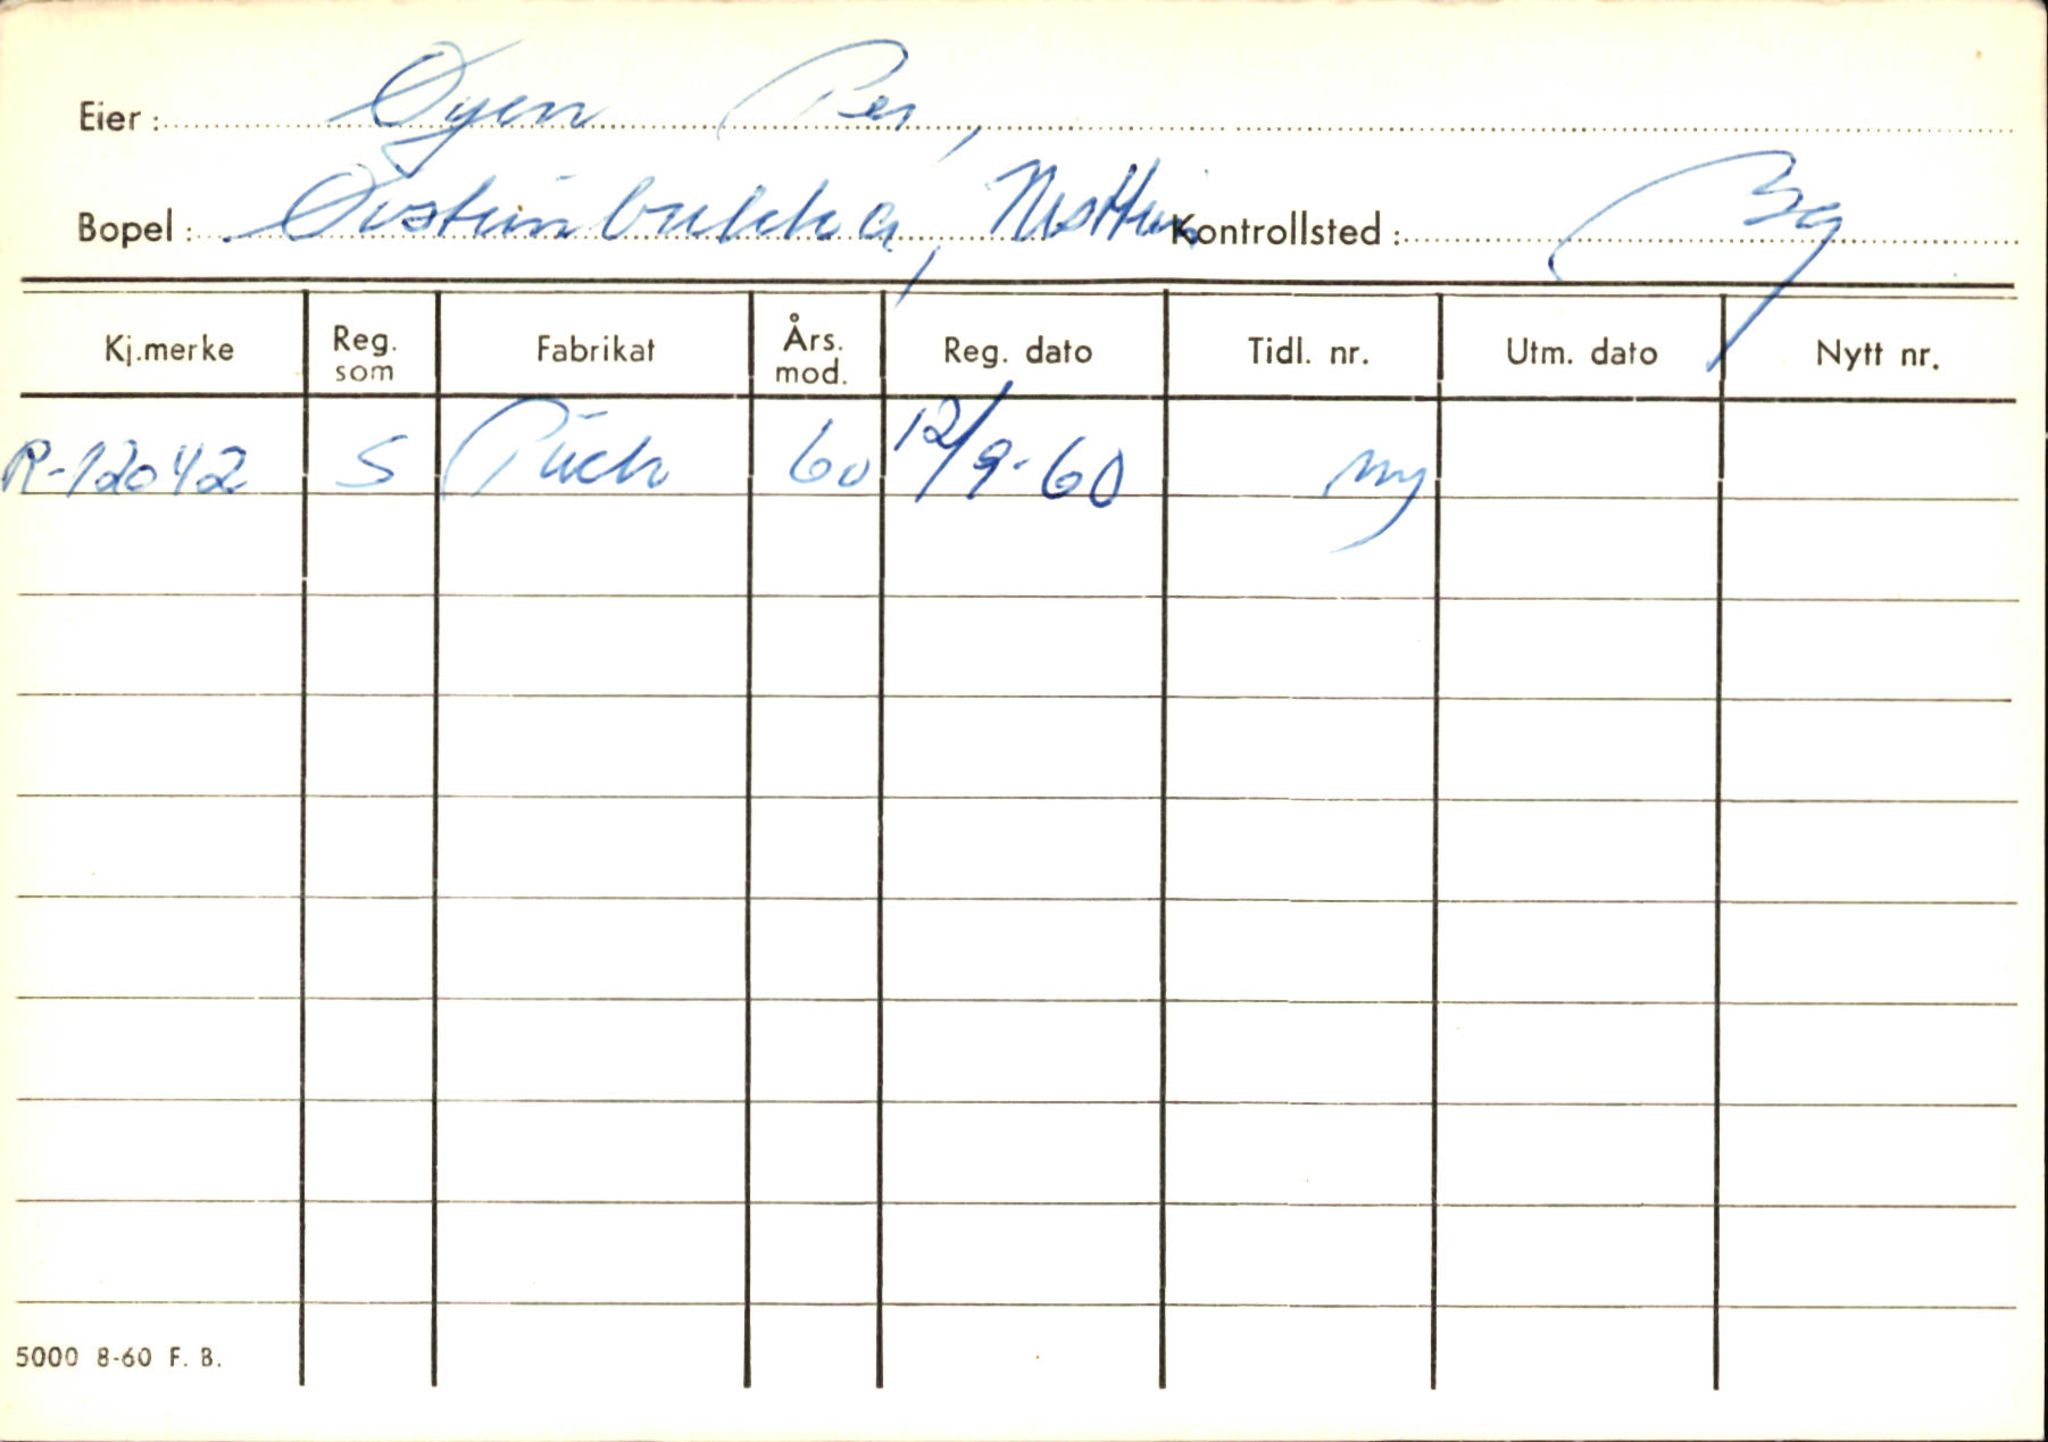 Eier: Øyen Per,
Bopel: Kontrollsted: Bg
Kj.merke Reg. som Fabrikat Års. mod. Reg. dato Tidl. nr. Utm. dato Nytt nr.
R-12042 S Puch 60 12/9-60 ny
5000 8-60 F. B.